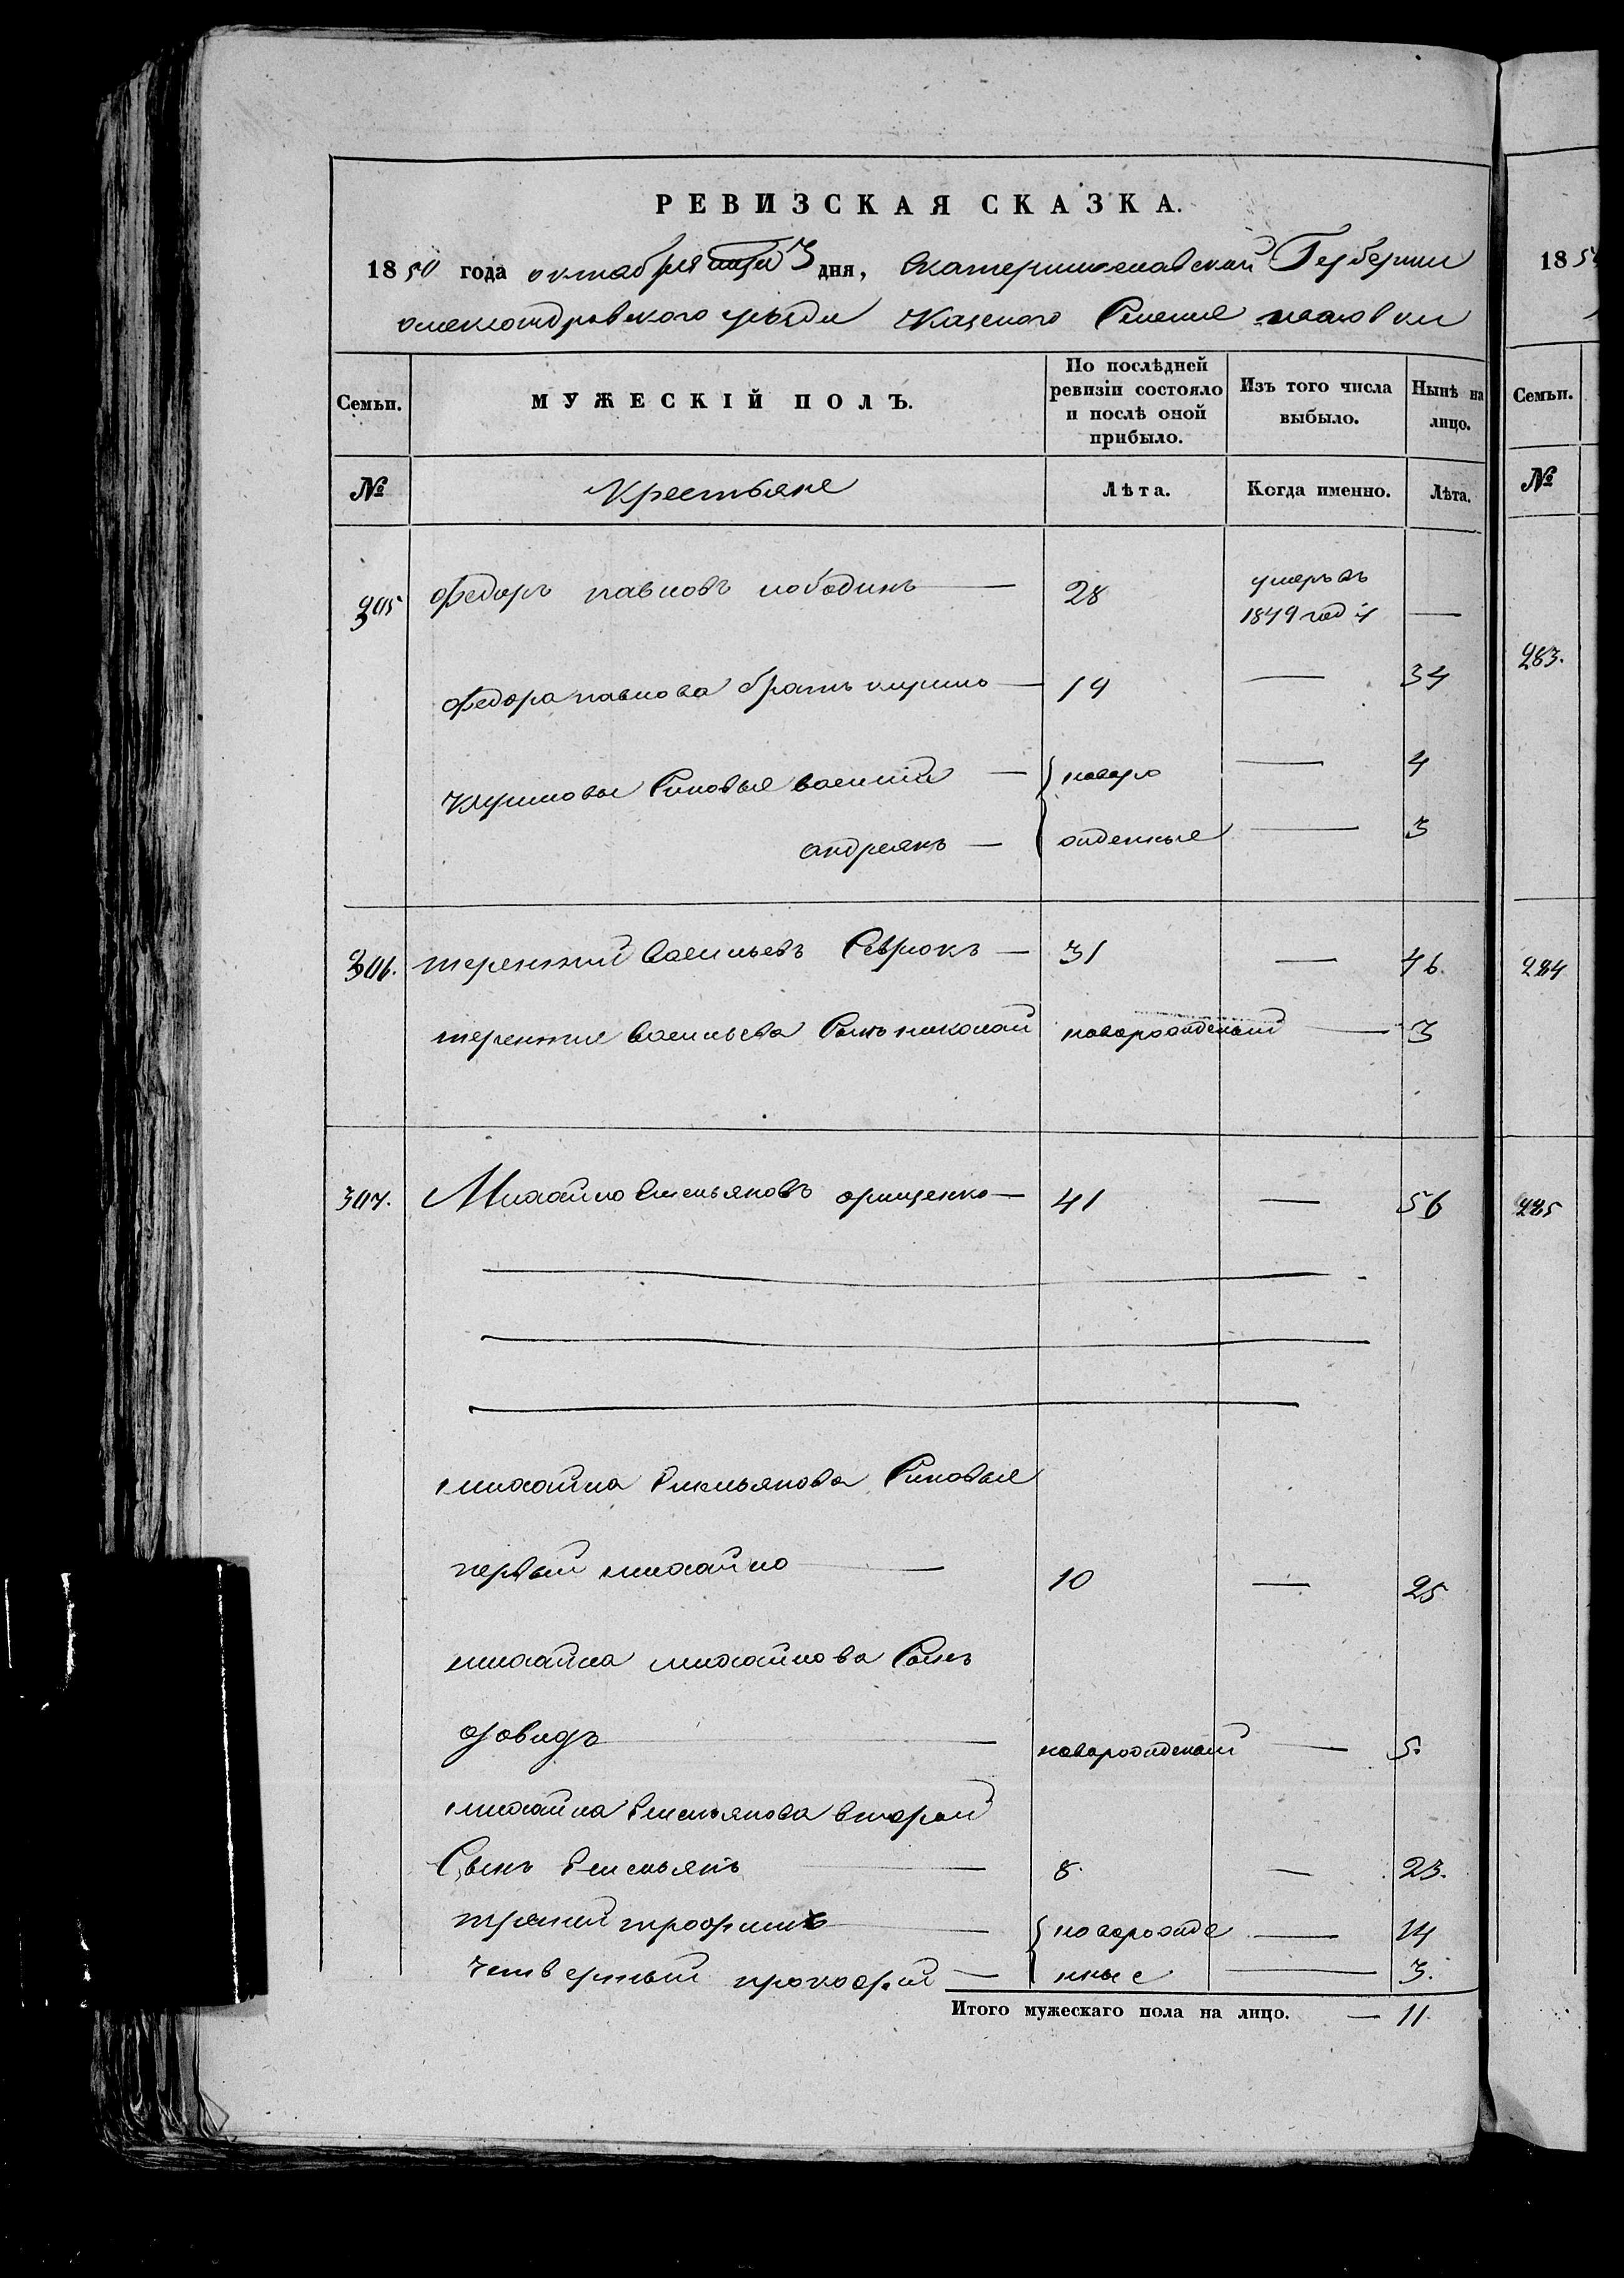 РЕВИЗСКАЯ СКАЗКА.
1850 года октября 3 дня, Екатеринославской Губернии
александровского уезда Казеного Селения
Семьи.
МУЖЕСКІЙ ПОЛЪ.
По послѣдней ревизіи состояло и послѣ оной прибыло.
Изъ того числа выбыло.
Нынѣ на лицо.
№
Крестьяне
Лѣта.
Когда именно.
Лѣта.
305 Федоръ павловъ лободинъ — 28 умеръ въ
1849 году —
Федора павлова братъ — 19 — 34
Синовья василий — новоро — 4
андреянъ — жденные — 3
306. терентий васильевъ Севрюкъ — 31 — 46.
терентия васильева Сынъ николай новорожденый — 3
307. Михайло Емельяновъ орищенко — 41 — 56
михайла Емельянова Синовья
первый михайло — 10 — 25
михайла михайлова Сынъ
давидъ — новорожденый — 5.
михайла Емельянова второй
Сынъ Емельянъ — 8. — 23.
третий трофимъ — новорожде — 14
четвертый прокофий — нные — 3.
Итого мужескаго пола на лицо. — 11.
185
Семьи.
№
283.
284
285